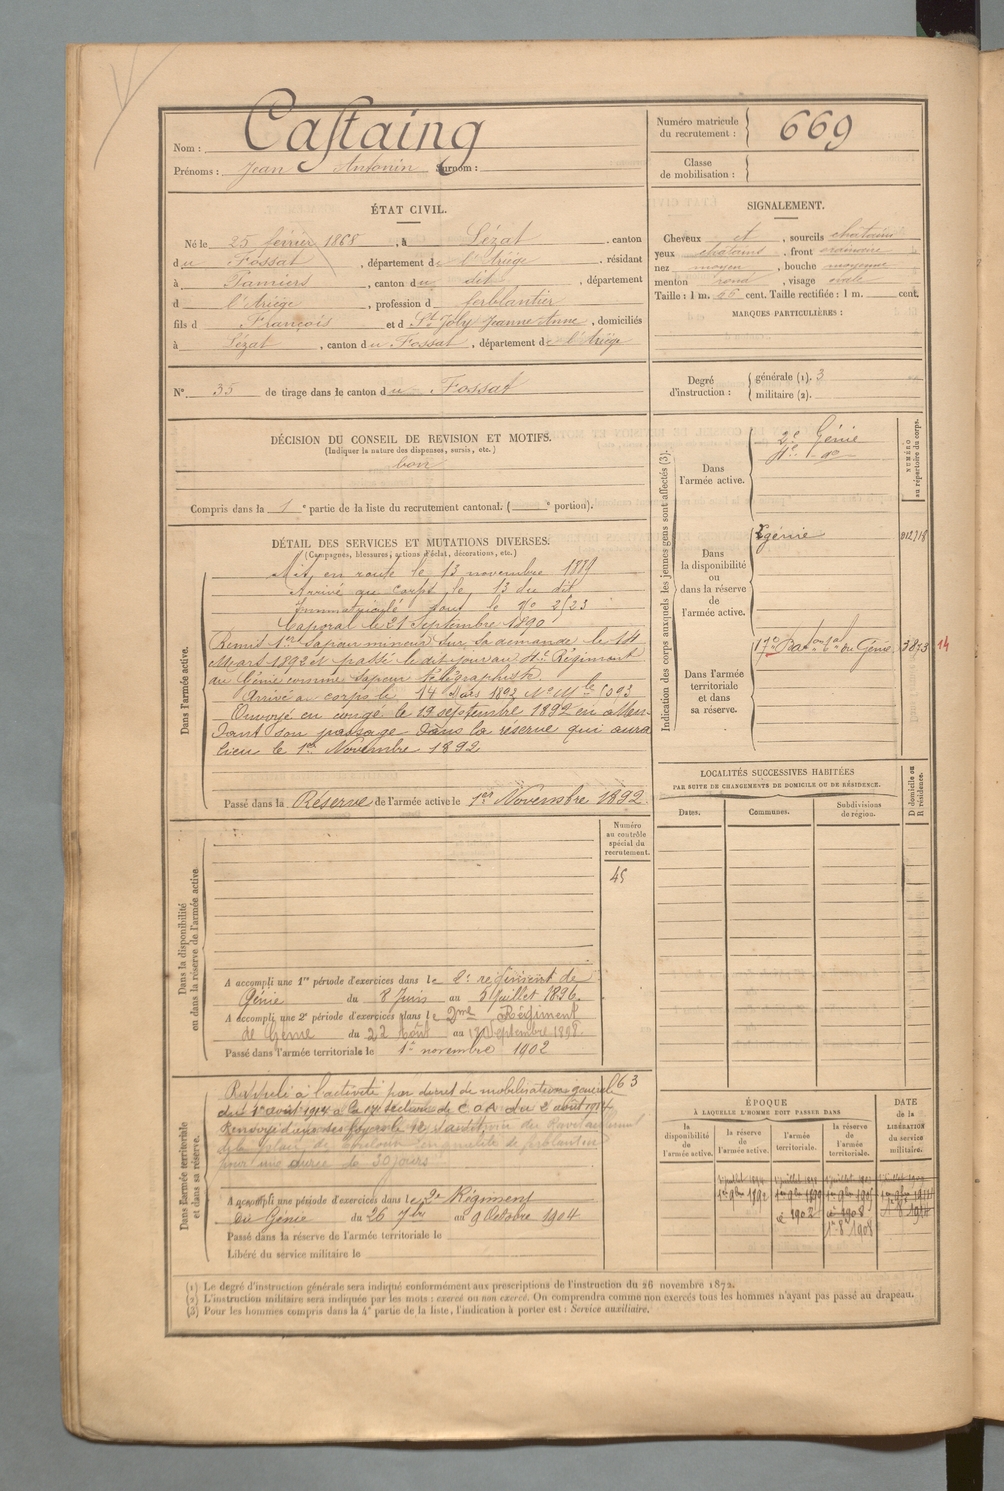 Nom : Castaing
Prénoms : Jean Antonin Surnom :
Numéro matricule du recrutement : 669
Classe de mobilisation :
ÉTAT CIVIL.
Né le 25 février 1868, à Lézat, canton
du Fossat, département de l'Ariège, résidant
à Pamiers, canton du dit, département
d l'Ariège, profession d ferblantier
fils d François et d St Joly Jeanne Anne, domiciliés
à Lézat, canton du Fossat, département de l'Ariège
SIGNALEMENT.
Cheveux et, sourcils chatains
yeux chatains, front ordinaire
nez moyen, bouche moyenne
menton rond, visage ovale
Taille : 1 m. 66 cent. Taille rectifiée : 1 m. cent.
MARQUES PARTICULIÈRES :
N° 35 de tirage dans le canton du Fossat
Degré d'instruction : générale (1). 3
militaire (2).
DÉCISION DU CONSEIL DE REVISION ET MOTIFS.
(Indiquer la nature des dispenses, sursis, etc.)
bon
Compris dans la 1e partie de la liste du recrutement cantonal. ( e portion).
DÉTAIL DES SERVICES ET MUTATIONS DIVERSES.
(Campagnes, blessures, actions d'éclat, décorations, etc.)
Dans l'armée active.
Mis en route le 13 novembre 1889
Arrivé au Corps le 13 du dit
Immatriculé sous le No 2523
Caporal le 21 Septembre 1890
Remis 1er Sapeur mineur sur sa demande le 14
Mars 1892 et passé le dit jour au 4e Régiment
du Génie comme Sapeur télégraphiste
Arrivé au corps le 14 Mars 1892 No Mle 5093
Envoyé en congé le 19 septembre 1892 en atten-
dant son passage dans la réserve qui aura
lieu le 1er Novembre 1892
Passé dans la Réserve de l'armée active le 1er Novembre 1892
Indication des corps auxquels les jeunes gens sont affectés (3).
NUMÉRO au répertoire du corps.
Dans l'armée active.
2e Génie
4e do
Dans la disponibilité ou dans la réserve de l'armée active.
2 génie
012718
Dans l'armée territoriale et dans sa réserve.
17e Baton tal du Génie
3873
14
LOCALITÉS SUCCESSIVES HABITÉES
PAR SUITE DE CHANGEMENTS DE DOMICILE OU DE RÉSIDENCE.
D domicile ou R résidence.
Dates.
Communes.
Subdivisions de région.
Dans la disponibilité ou dans la réserve de l'armée active.
Numéro au contrôle spécial du recrutement.
45
A accompli une 1re période d'exercices dans le 2e régiment de
Génie du 8 Juin au 5 Juillet 1896.
A accompli une 2e période d'exercices dans le 2me Régiment
de Génie du 22 Août au 18 Septembre 1898
Passé dans l'armée territoriale le 1er novembre 1902
Dans l'armée territoriale et dans sa réserve.
63
Rappelé à l'activité par décret de mobilisation générale
du 1er août 1914 à la 17e section de C O A du 2 août 1914
Renvoyé dans ses foyers le 12
pour une durée de 30 jours
A accompli une période d'exercices dans le 2e Régiment
du Génie du 26 7bre au 9 Octobre 1904
Passé dans la réserve de l'armée territoriale le
Libéré du service militaire le
ÉPOQUE
À LAQUELLE L'HOMME DOIT PASSER DANS
DATE de la LIBÉRATION du service militaire.
la disponibilité de l'armée active.
la réserve de l'armée active.
l'armée territoriale.
la réserve de l'armée territoriale.
1er 9bre 1892
1er 9bre 1899
1902
1er 9bre 1905
1908
1er 8 1908
(1) Le degré d'instruction générale sera indiqué conformément aux prescriptions de l'instruction du 26 novembre 1872.
(2) L'instruction militaire sera indiquée par les mots : exercé ou non exercé. On comprendra comme non exercés tous les hommes n'ayant pas passé au drapeau.
(3) Pour les hommes compris dans la 4e partie de la liste, l'indication à porter est : Service auxiliaire.